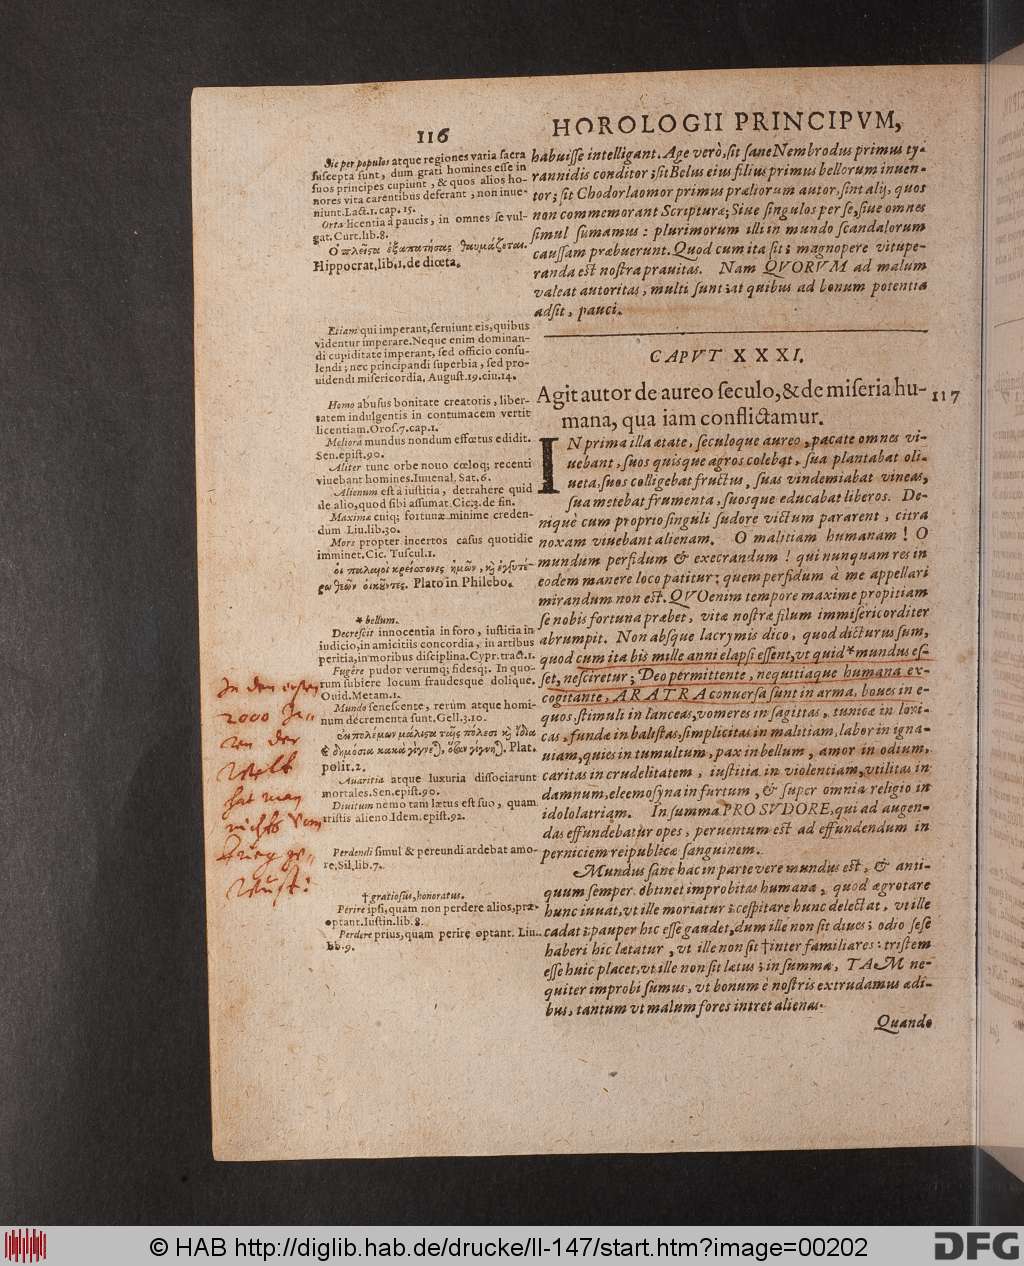 116
HOROLOGII PRINCIPVM,
Sic per populos atque regiones varia sacra
suscepta sunt, dum grati homines esse in
suos principes cupiunt, & quos alios ho-
nores vita carentibus deferant, non inue-
niunt. Lact. 1. cap. 15.
Orta licentia à paucis, in omnes se vul-
gat. Curt. lib. 8.
Hippocrat. lib. 1. de diæta.
Etiam qui imperant, seruiunt eis, quibus
videntur imperare. Neque enim dominan-
di cupiditate imperant, sed officio consu-
lendi; nec principandi superbia, sed pro-
uidendi misericordia, August. 19. ciu. 14.
Homo abusus bonitate creatoris, liber-
tatem indulgentis in contumacem vertit
licentiam. Oros. 7. cap. 1.
Meliora mundus nondum effœtus edidit.
Sen. epist. 90.
Aliter tunc orbe nouo cœloq; recenti
viuebant homines. Iuuenal. Sat. 6.
Alienum est à iustitia, detrahere quid
de alio, quod sibi assumat. Cic. 3. de fin.
Maximæ cuiq; fortunæ minime creden-
dum Liu. lib. 30.
Mors propter incertos casus quotidie
imminet. Cic. Tuscul. 1.
Plato in Philebo.
* bellum.
Decrescit innocentia in foro, iustitia in
iudicio, in amicitiis concordia, in artibus
peritia, in moribus disciplina. Cypr. tract. 1.
Fugêre pudor verumq; fidesq;. In quo-
rum subiere locum fraudesque dolique.
Ouid. Metam. 1.
Mundo senescente, rerum atque homi-
num decrementa sunt. Gell. 3. 10.
Plat.
polit. 2.
Auaritia atque luxuria dissociarunt
mortales. Sen. epist. 90.
Diuitum nemo tam lætus est suo, quam
tristis alieno. Idem. epist. 92.
Perdendi simul & pereundi ardebat amo-
re, Sil. lib. 7.
† gratiosus, honoratus.
Perire ipsi, quam non perdere alios, præ-
optant. Iustin. lib. 8.
Perdere prius, quam perire optant. Liu.
lib. 9.
In den ersten
2000 Ja-
ren der
Welt
hat man
nichts vom
Krieg ge-
wust:
habuisse intelligant. Age verò, sit sane Nembrodus primus ty-
rannidis conditor; sit Belus eius filius primus bellorum inuen-
tor; sit Chodorlaomor primus præliorum autor, sint alij, quos
non commemorant Scripturæ; Siue singulos per se, siue omnes
simul sumamus: plurimorum illi in mundo scandalorum
caussam præbuerunt. Quod cum ita sit; magnopere vitupe-
randa est nostra prauitas. Nam QVORVM ad malum
valeat autoritas, multi sunt; at quibus ad bonum potentia
adsit, pauci.
CAPVT XXXI.
Agit autor de aureo seculo, & de miseria hu-
mana, qua iam conflictamur.
117
IN prima illa ætate, seculoque aureo, pacate omnes vi-
uebant, suos quisque agros colebat, sua plantabat oli-
ueta, suos colligebat fructus, suas vindemiabat vineas,
sua metebat frumenta, suosque educabat liberos. De-
nique cum proprio singuli sudore victum pararent, citra
noxam viuebant alienam. O malitiam humanam! O
mundum perfidum & execrandum! qui nunquam res in
eodem manere loco patitur; quem perfidum à me appellari
mirandum non est. QVO enim tempore maxime propitiam
se nobis fortuna præbet, vitæ nostræ filum immisericorditer
abrumpit. Non absque lacrymis dico, quod dicturus sum,
quod cum ita bis mille anni elapsi essent, vt quid * mundus es-
set, nesciretur; Deo permittente, nequitiaque humana ex-
cogitante, ARATRA conuersa sunt in arma, boues in e-
quos, stimuli in lanceas, vomeres in sagittas, tunicæ in lori-
cas, fundæ in balistas, simplicitas in malitiam, labor in igna-
uiam, quies in tumultum, pax in bellum, amor in odium,
caritas in crudelitatem, iustitia in violentiam, vtilitas in
damnum, eleemosyna in furtum, & super omnia religio in
idololatriam. In summa PRO SVDORE, qui ad augen-
das effundebatur opes, peruentum est ad effundendum in
perniciem reipublicæ sanguinem.
Mundus sane hac in parte vere mundus est, & anti-
quum semper obtinet improbitas humana, quod ægrotare
hunc iuuat, vt ille moriatur; cespitare hunc delectat, vt ille
cadat; pauper hic esse gaudet, dum ille non sit diues; odio sese
haberi hic lætatur, vt ille non sit † inter familiares: tristem
esse huic placet, vt ille non sit lætus; in summa, TAM ne-
quiter improbi sumus, vt bonum è nostris extrudamus ædi-
bus, tantum vt malum fores intret alienas.
Quando
© HAB http://diglib.hab.de/drucke/ll-147/start.htm?image=00202
DFG